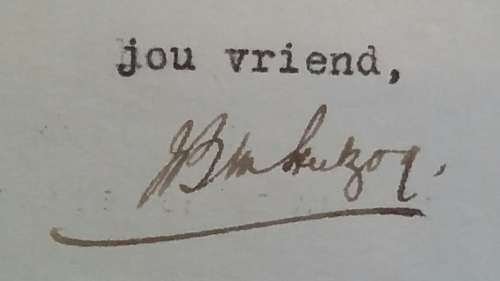 jou vriend,
JBM Hertzog.